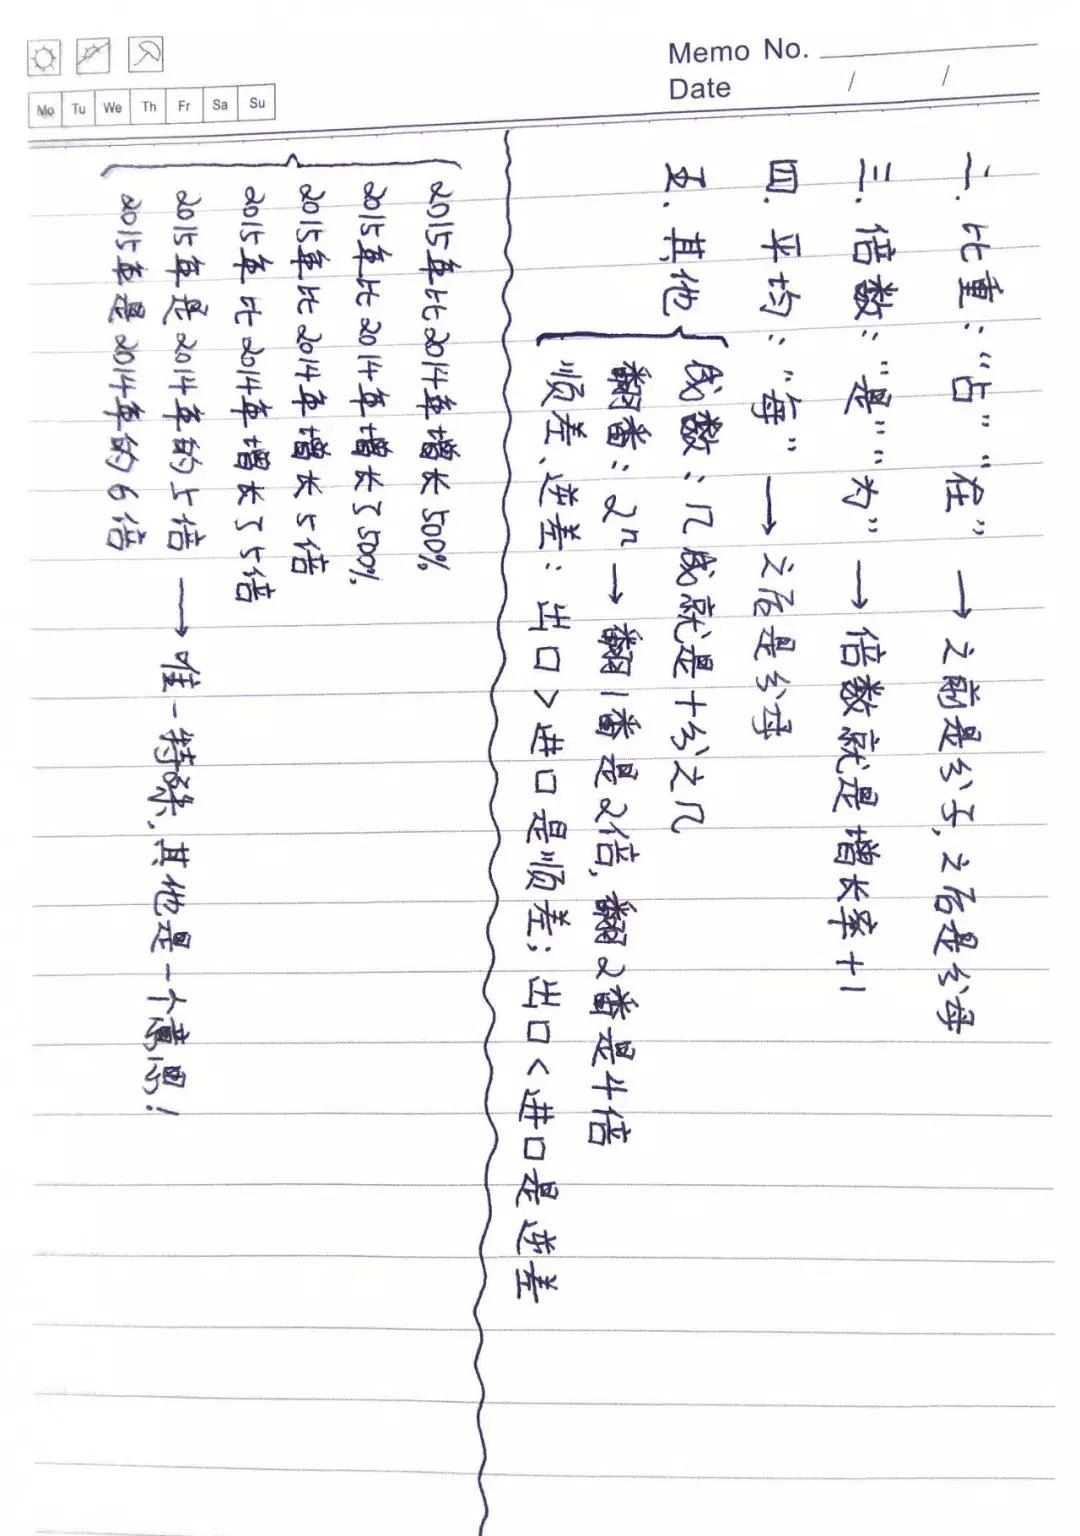 Memo No.
Date / /
Mo Tu We Th Fr Sa Su
二. 比重："占" "在" → 之前是分子，之后是分母
三. 倍数："是" "为" → 倍数就是增长率+1
四. 平均："每" → 之后是分母
五. 其他
成数：几成就是十分之几
翻番：2ⁿ → 翻1番是2倍，翻2番是4倍
顺差、逆差：出口>进口是顺差；出口<进口是逆差
2015年比2014年增长500%
2015年比2014年增长了500%
2015年比2014年增长5倍
2015年比2014年增长了5倍
2015年是2014年的5倍 → 唯一特殊，其他是一个意思！
2015年是2014年的6倍